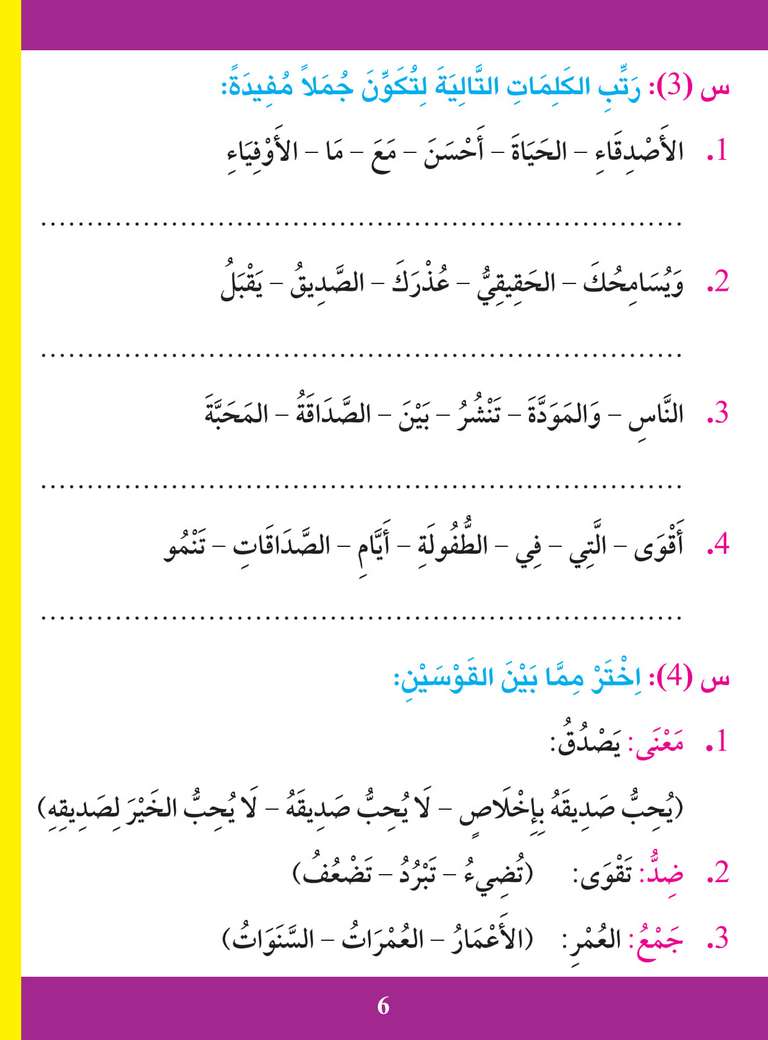 س (3): رَتِّبِ الكَلِمَاتِ التَّالِيَةَ لِتُكَوِّنَ جُمَلاً مُفِيدَةً:
1. الأَصْدِقَاءِ – الحَيَاةَ – أَحْسَنَ – مَعَ – مَا – الأَوْفِيَاءِ
......................................................................
2. وَيُسَامِحُكَ – الحَقِيقِيُّ – عُذْرَكَ – الصَّدِيقُ – يَقْبَلُ
......................................................................
3. النَّاسِ – وَالمَوَدَّةَ – تَنْشُرُ – بَيْنَ – الصَّدَاقَةُ – المَحَبَّةَ
......................................................................
4. أَقْوَى – الَّتِي – فِي – الطُّفُولَةِ – أَيَّامِ – الصَّدَاقَاتِ – تَنْمُو
......................................................................
س (4): اِخْتَرْ مِمَّا بَيْنَ القَوْسَيْنِ:
1. مَعْنَى: يَصْدُقُ:
(يُحِبُّ صَدِيقَهُ بِإِخْلَاصٍ – لَا يُحِبُّ صَدِيقَهُ – لَا يُحِبُّ الخَيْرَ لِصَدِيقِهِ)
2. ضِدُّ: تَقْوَى: (تُضِيءُ – تَبْرُدُ – تَضْعُفُ)
3. جَمْعُ: العُمْرِ: (الأَعْمَارُ – العُمْرَاتُ – السَّنَوَاتُ)
6